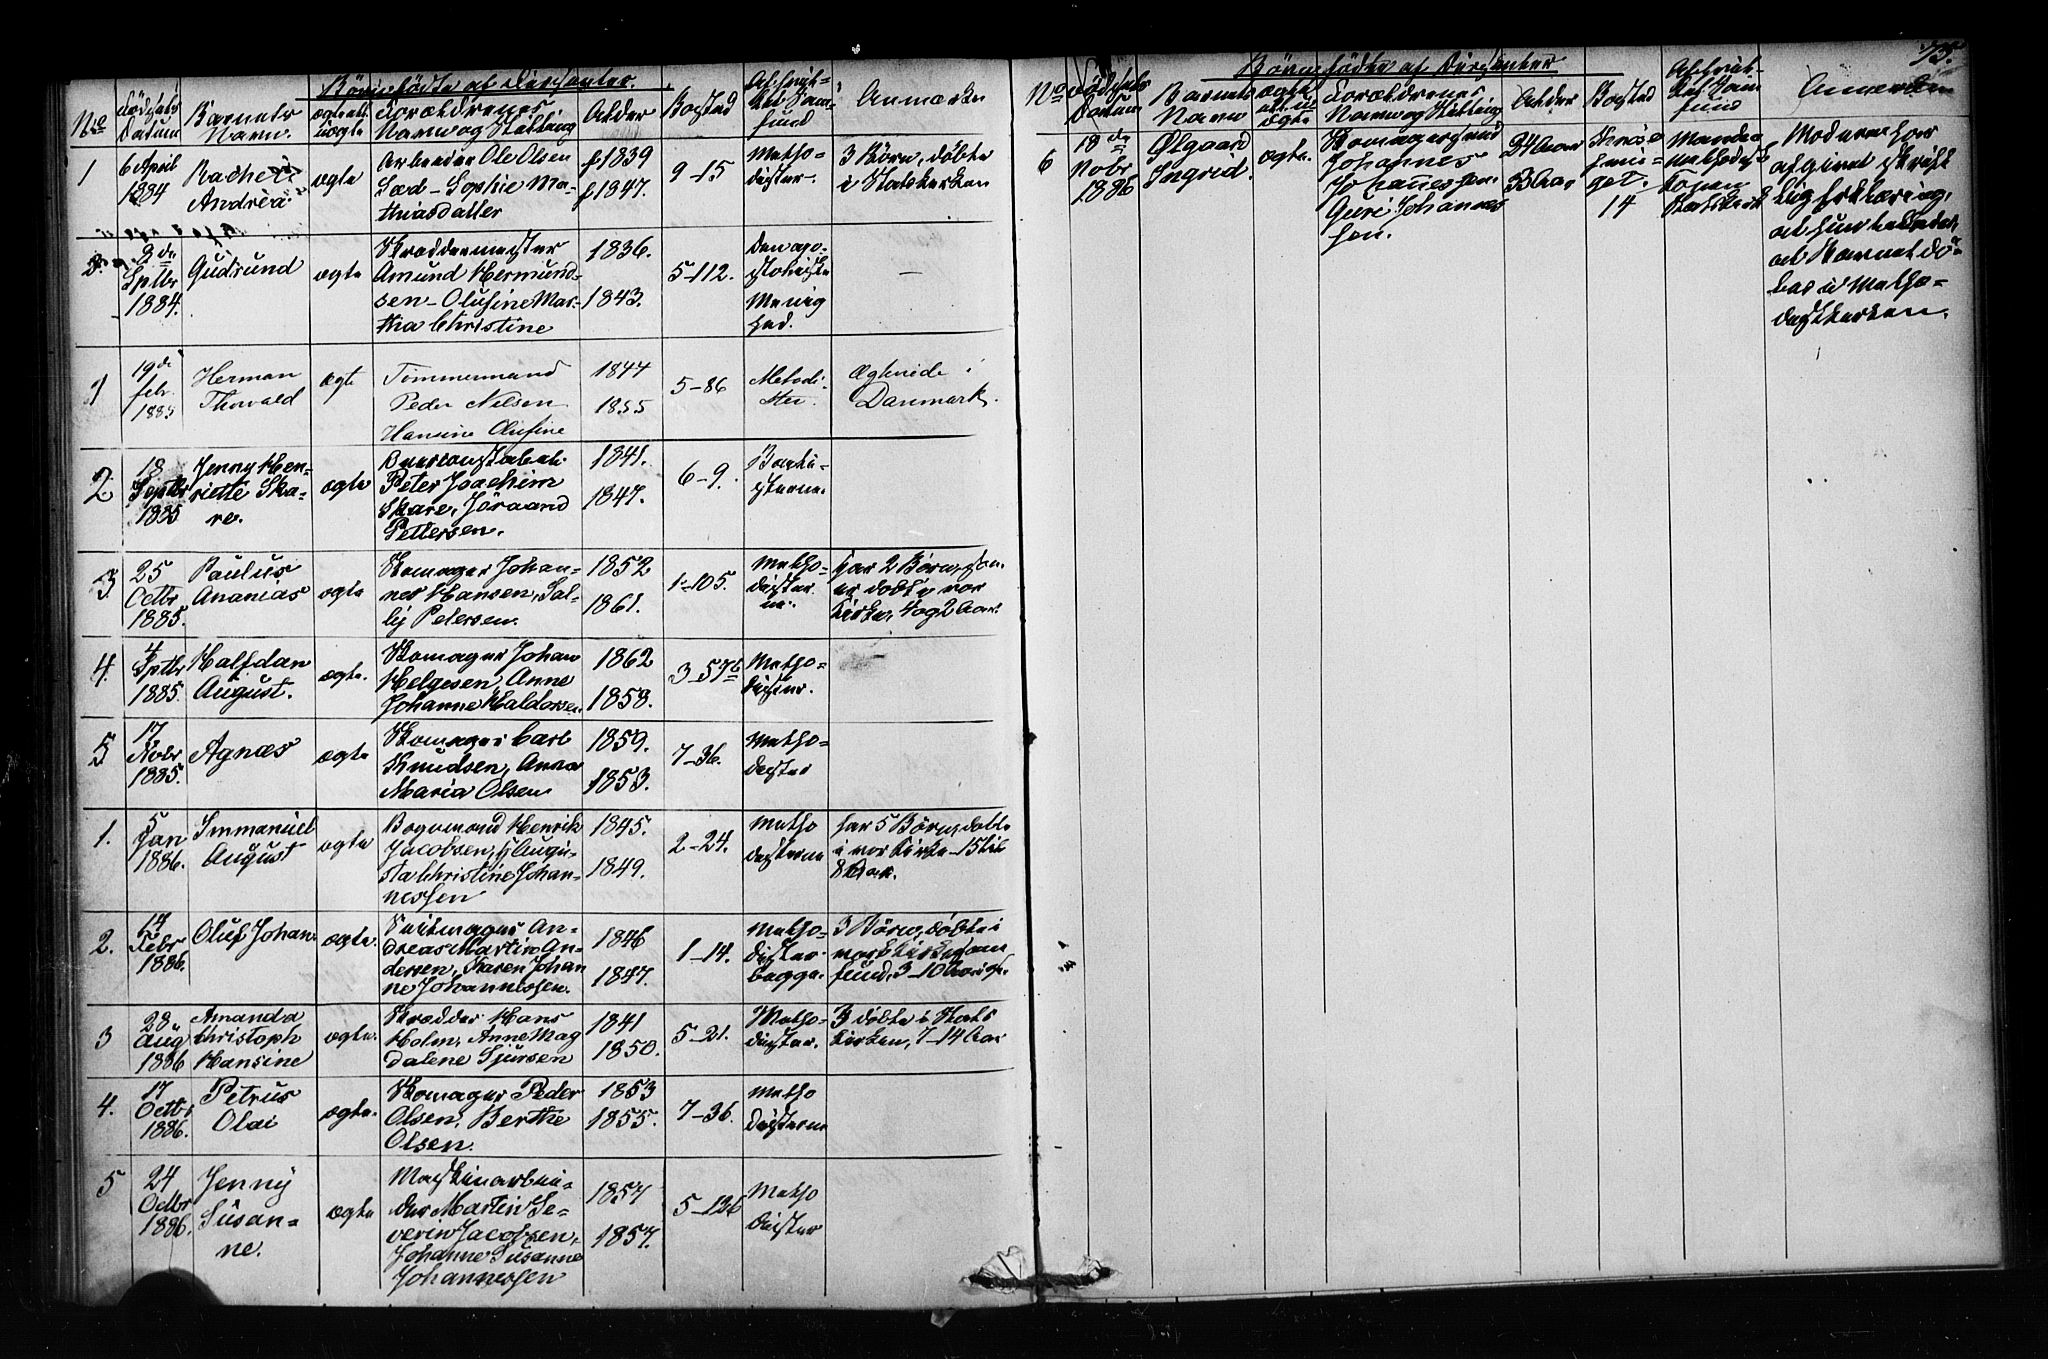 Børn fødte af Dissenter.
No
Fødsels Datum
Barnets Navn.
ægte ell. uægte
Forældrenes Navn og Stilling
Alder
Bosted
Anmærkn
1
6 April 1884
Rachel Andrea
ægte
Arbeider Ole Olsen
Sophie Ma-
thiasdatter
f 1839
f 1847.
9-15
Metho-
dister
3 Børn, døbte
i Statskirken
2.
9de Sptbr 1884.
Gudrund
ægte
Skræddermester
Amund Hermund-
sen - Olufine Mar-
tha Christine
1836.
1843.
5-112.
Den apo-
stoliske
Menig
hed.
—
1
19de febr. 1885
Herman
Thorvald
ægte
Tømmermand
Peder Nilsen
Hansine Olufine
1844
1855
5-86
Metodi-
ster.
Ægteviede i
Danmark.
2
18 Septbr 1885
Jenny Hen-
riette Ska-
re.
ægte
Peter Joachim
Skare, Jøraand
Pettersen.
1841.
1847.
6-9.
Bapti-
sterne.
3
25 Octbr 1885.
Paulus
Ananias
ægte
Skomager Johan-
nes Hansen, Sal-
by Petersen.
1852
1861.
1-105.
Metho-
dister
ne.
har 2 Børn, som
er døbte i vor
Kirke, 4 og 2 Aar.
4.
4 Sptbr 1885.
Halfdan
August.
ægte.
Skomager Johan
Helgesen, Anne
Johanne Haldorsen.
1862
1858.
3-57b
Metho-
dister.
5
17 Novbr 1885.
Agnes
ægte
Skomager Carl
Knudsen, Anna
Maria Olsen
1859.
1853.
7-36.
Metho-
dister
1.
5 Jan 1886.
Immanuel
August
ægte
Bogmand Henrik
Jacobsen, Augu-
sta Christine Johan-
nessen
1845.
1849.
2-24.
Metho
disterne
har 5 Børn, døbte
i vor Kirke - 15 til
8 Aar.
2.
14 Febr 1886.
Oluf Johan
ægte.
An-
dreas Martin An-
dersen, Karen Johan
ne Johannessen.
1846
1847.
1-14.
Metho-
dister
begge.
3 Børn, døbte i
vort Kirkesam
fund, 3-10 Aar gl.
3
28 Aug 1886
Amanda
Christoph
Hansine
ægte.
Skrædder Hans
Holm, Anne Mag
dalene Sjursen
1841
1850.
5-21.
Metho-
dister.
3 døbte i Stats
kirken, 7-14 Aar
4.
17 Octbr 1886.
Petrus
Olai
ægte.
Skomager Peder
Olsen, Berthe
Olsen.
1853
1855.
7-36.
Metho
disterne
5
24 Octbr 1886.
Jenny
Susan-
ne.
ægte
Maskinarbei-
der Martin Se-
verin Jacobsen,
Johanne Susanne
Johannessen
1857
1857.
5-126
Metho
dister
73.
Børn fødte af Dissenter
No
Fødsels Datum
Barnets Navn
Forældrenes
Navn og Stilling
Alder
Bosted
Anmærkn
6
18de Novbr 1886
Ølgaard
Ingrid.
ægte.
Skomagersvend
Johannes
Johannessen.
Guri Johannes
sen.
34 Aar
14
Moderen har
afgivet skrift
lig Erklæring,
at hun
at Barnet dø-
bes i Metho-
distkirken.